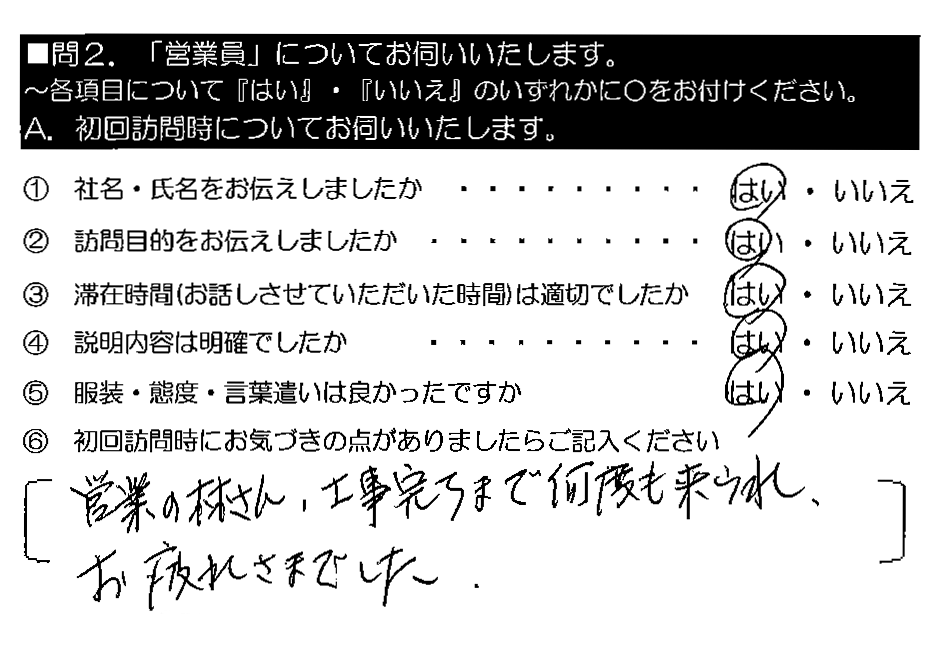 ■問2.「営業員」についてお伺いいたします。
～各項目について『はい』・『いいえ』のいずれかに○をお付けください。
A. 初回訪問時についてお伺いいたします。
① 社名・氏名をお伝えしましたか ・・・・・・・・・ はい ・ いいえ
② 訪問目的をお伝えしましたか ・・・・・・・・・・ はい ・ いいえ
③ 滞在時間(お話しさせていただいた時間)は適切でしたか はい ・ いいえ
④ 説明内容は明確でしたか ・・・・・・・・・・ はい ・ いいえ
⑤ 服装・態度・言葉遣いは良かったですか はい ・ いいえ
⑥ 初回訪問時にお気づきの点がありましたらご記入ください
営業の林さん、工事完了まで何度も来られ、
お疲れさまでした.